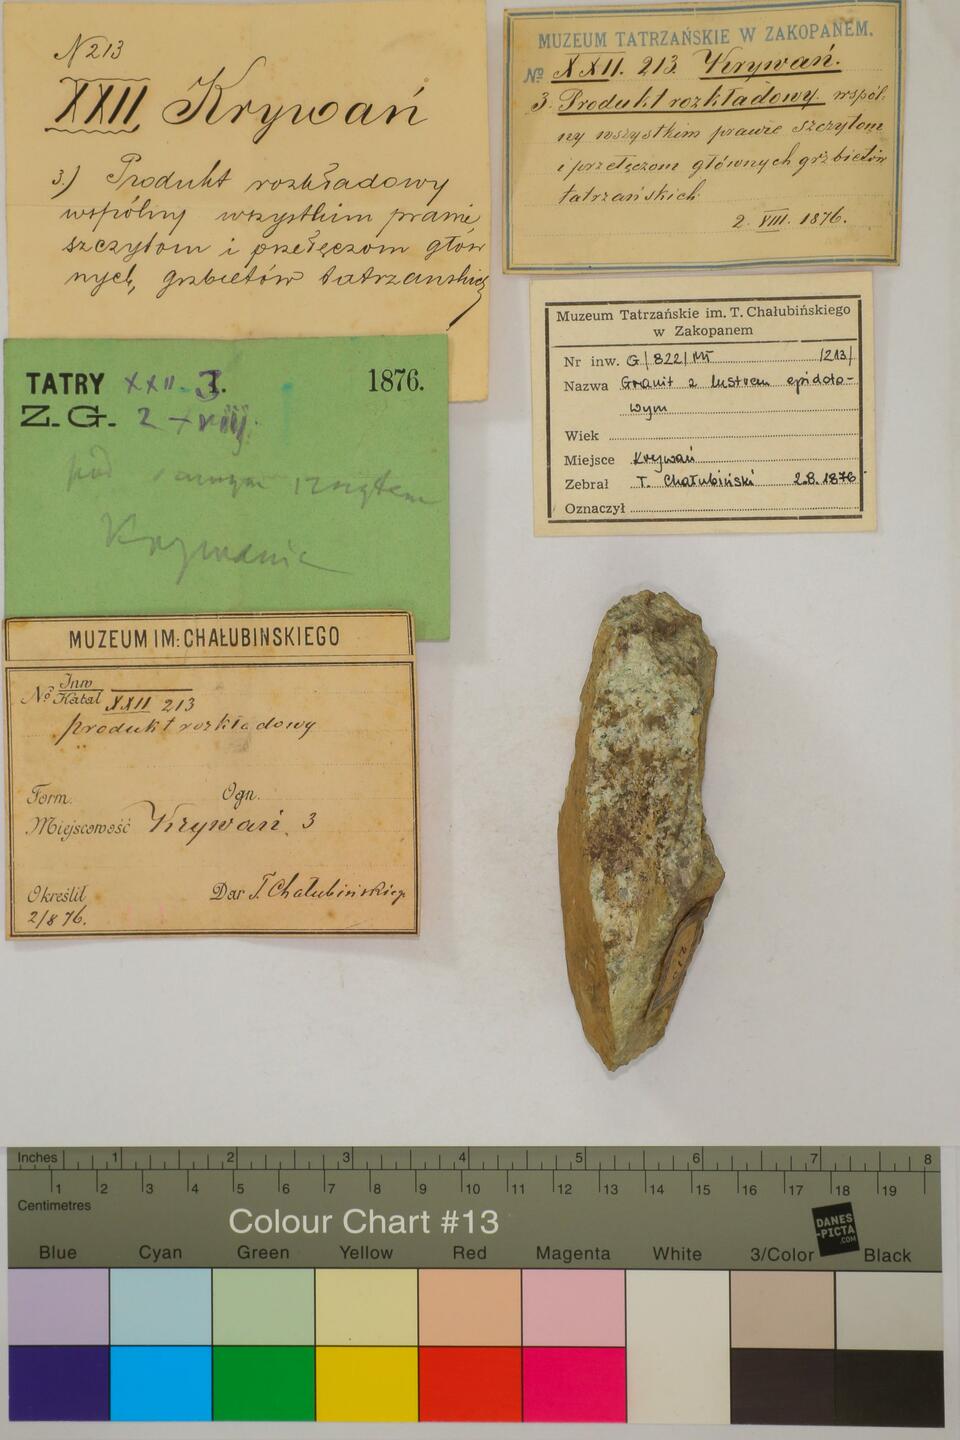 N 213
XXII Krywań
3.) Produkt rozkładowy
wspólny wszystkim prawie
szczytom i przełęczom głów
nych, grzbietów tatrzańskich
MUZEUM TATRZAŃSKIE W ZAKOPANEM.
No XXII. 213. Krywań.
3. Produkt rozkładowy wspól-
ny wszystkim prawie szczytom
i przełęczom głównych grzbietów
tatrzańskich
2. VIII. 1876.
Muzeum Tatrzańskie im. T. Chałubińskiego
w Zakopanem
Nr inw. G/822/MT /213/
Nazwa Granit z lustrem epidoto-
wym
Wiek
Miejsce Krywań
Zebrał T. Chałubiński 2.8.1876
Oznaczył
TATRY XXII. 3. 1876.
Z. G. 2 VIII
pod samym szczytem
Krywania
MUZEUM IM: CHAŁUBINSKIEGO
No Inw
Katal XXII 213
produkt rozkładowy
Form. Ogn.
Miejscowość Krywań. 3
Określił Dar T. Chałubińskiego
2/8 76.
213
Inches 1 2 3 4 5 6 7 8
1 2 3 4 5 6 7 8 9 10 11 12 13 14 15 16 17 18 19
Centimetres
Colour Chart #13
DANES
-PICTA
.COM
Blue Cyan Green Yellow Red Magenta White 3/Color Black